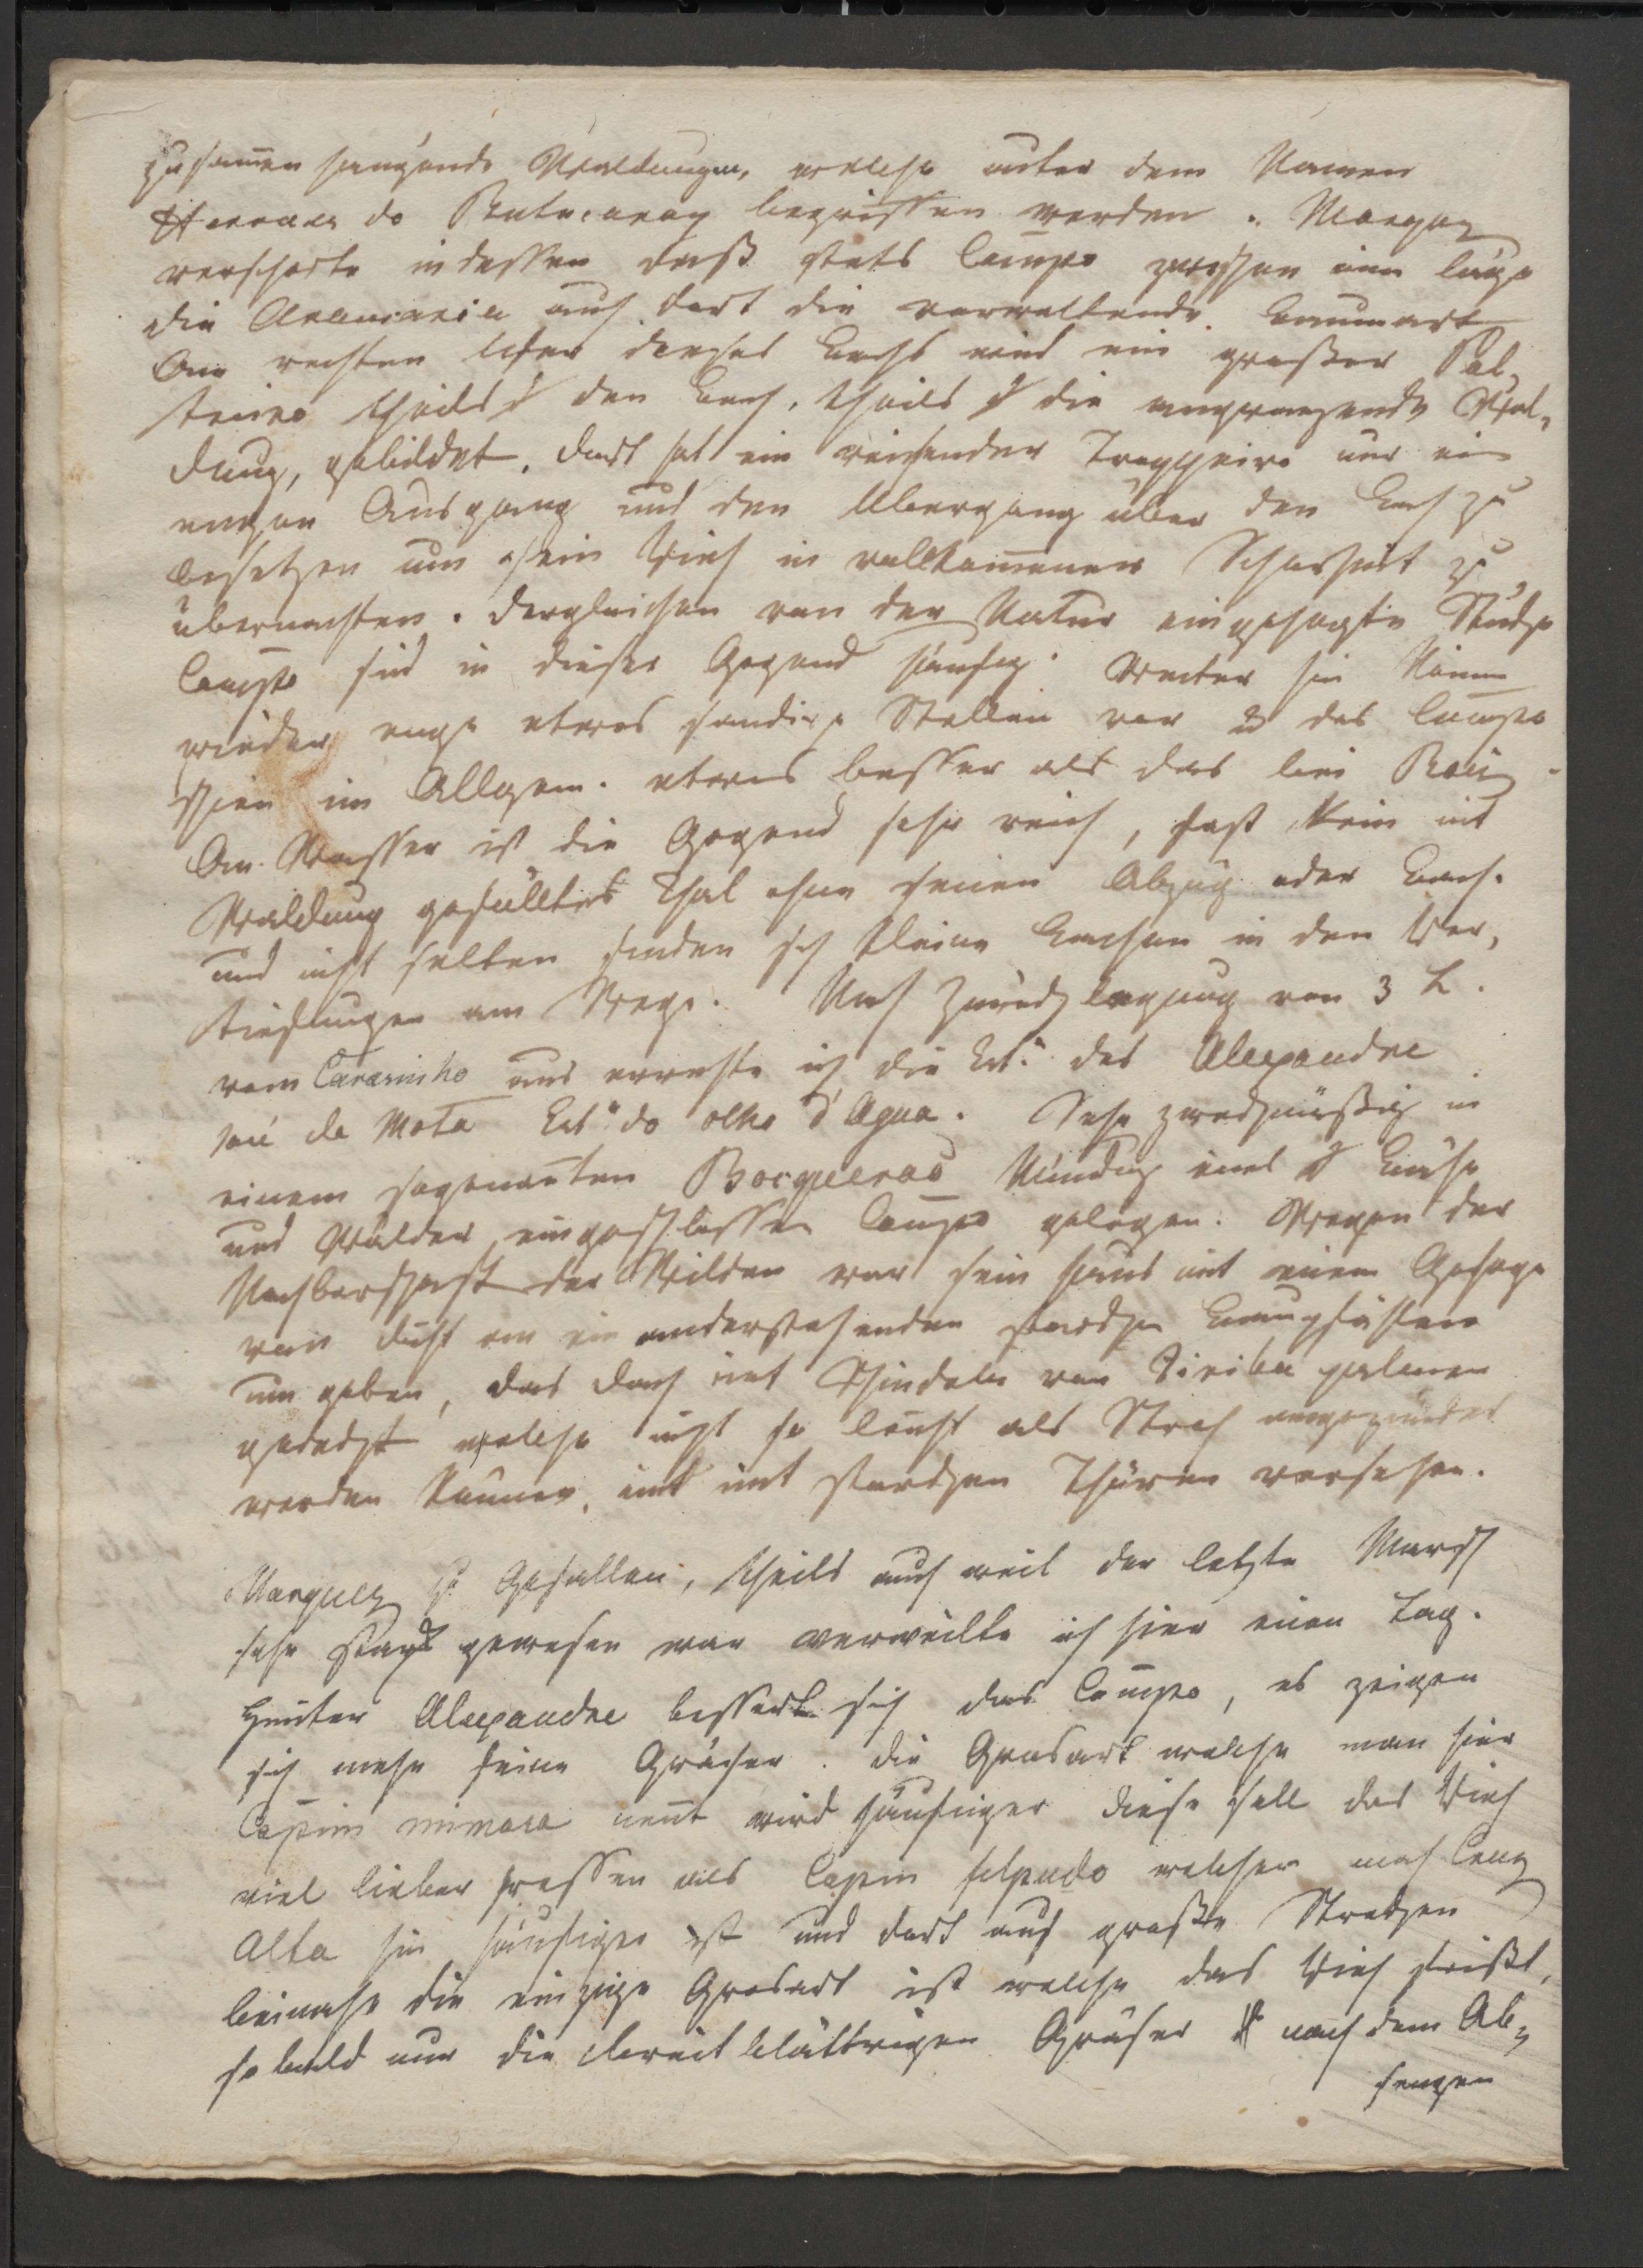 zusam̄en hangende Waldungen, welche unter dem Namen
do Butucaray begriffen werden. Marquez
versicherte indessen daß stets Campo zwischen inne liege
die Araucaria auch dort die vorwaltende Baumart
Am rechten Ufer dieses Bachs wird ein großer Pal-
theils den Bach, theils die angränzende Wal-
dung, gebildet. Dort hat ein reisender Troppeiro nur ein
engen Ausgang und den Übergang über den Bach zu
besetzen um sein Vieh in vollkom̄ener Sicherheit zu
übernachten. Dergleichen von der Natur eingehegte Stücke
Campo sind in dieser Gegend häufig. Weiter hin kamen
wieder enge etwas sandige Stellen vor u das Campo
schien im Allgem. etwas besser als das bei
An Wasser ist die Gegend sehr reich, fast kein mit
Waldung gefülltes Thal ohne seinen Abzug oder Bach.
und nicht selten finden sich kleine Lachen in den Ver-
tiefungen am Wege. Nach Zurücklegung von 3 L.
vom Carasinho aus erreichte ich die Est.ª des Alexandre
José da Mota Est.ª do olho d'Agua. Sehr zweckmäßig in
einem sogenan̄ten Bocqueirao Mündung eines Bäche
und Wälder eingeschlossen Campo gelegen. Wegen der
Nachbarschaft der Wilden war sein Haus mit einem Gehege
von dicht an einanderstehenden starken Baumpfählen
um geben, das Dach mit Schindeln von Tiriba palmen
gedeckt welche nicht so leicht als Stroh angezündet
werden kön̄en, und mit starken Thüren versehen.
Marquez z. Gefallen, theils auch weil der letzte Marsch
sehr stark gewesen war verweilte ich hier einen Tag.
Hinter Alexandre bessert sich das Campo, es zeigen
sich mehr feine Gräser. die Grasart welche man hier
Capim mimoso nen̄t wird häufiger diese soll das Vieh
viel lieber fressen als Capim felpudo welcher nach Cruz
Alta hin häufiger ist und dort auf große Strecken
beinahe die einzige Grasart ist welche das Vieh frißt,
so bald nur die breitblättrigen Gräser nach dem Ab-
sengen